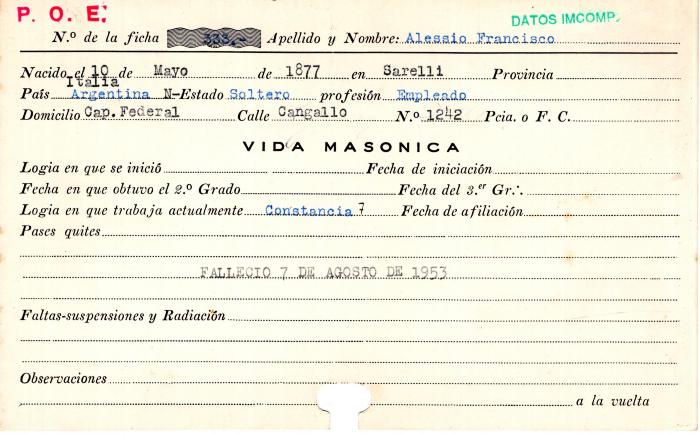 P. O. E.
DATOS IMCOMP.
N.º de la ficha 333.- Apellido y Nombre: Alessio Francisco
Nacido el 10 de Mayo de 1877 en Sarelli Provincia
Italia
País Argentina N-Estado Soltero profesión Empleado
Domicilio Cap. Federal Calle Cangallo N.º 1242 Pcia. o F. C.
VIDA MASONICA
Logia en que se inició Fecha de iniciación
Fecha en que obtuvo el 2.º Grado Fecha del 3.er Gr∴
Logia en que trabaja actualmente Constancia 7 Fecha de afiliación
Pases quites
FALLECIO 7 DE AGOSTO DE 1953
Faltas-suspensiones y Radiación
Observaciones
a la vuelta